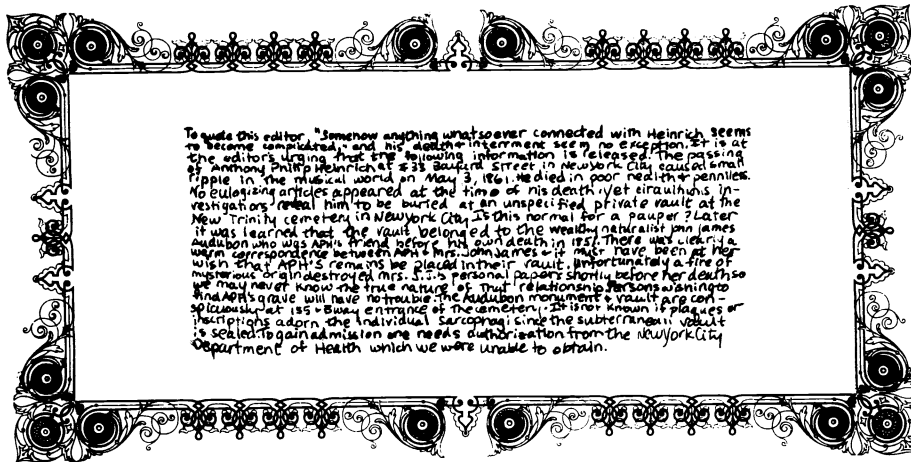 To quote this editor, "Somehow anything whatsoever connected with Heinrich seems
to become complicated," and his death + interrment seem no exception. It is at
the editor's urging that the following information is released. The passing
of Anthony Philip Heinrich at #33 Bayard Street in New York City caused small
ripple in the musical world on May 3, 1861. He died in poor health + penniless.
No eulogizing articles appeared at the time of his death. Yet investigations
vestigations reveal him to be buried at an unspecified private vault at the
New Trinity cemetery in New York City. Is this normal for a pauper? Later
it was learned that the vault belonged to the wealthy naturalist John James
Audubon who was APH's friend before his own death in 1851. There was clearly a
warm correspondence between APH + Mrs. John James + it must have been at her
wish that APH's remains be placed in their vault. Unfortunately a fire of
mysterious origin destroyed Mrs. J.J.'s personal papers shortly before her death so
we may never know the true nature of that relationship. Persons wishing to
find APH's grave will have no trouble. The Audubon monument + vault are con-
spicuously at 155 + Bway entrance of the cemetery. It is not known if plaques or
inscriptions adorn the individual sarcophagi since the subterranean vault
is sealed. To gain admission one needs authorization from the New York City
Department of Health which we were unable to obtain.